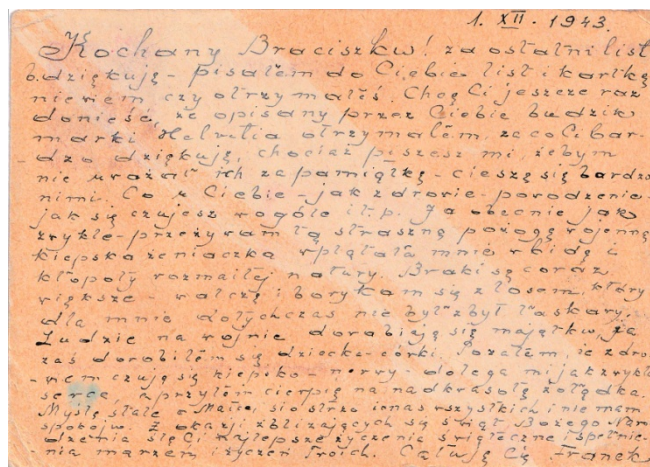 1. XII. 1943.
Kochany Braciszku! za ostatni list
b. dziękuję – pisałem do Ciebie list i kartkę
niewiem, czy otrzymałeś. Chcę Ci jeszcze raz
donieść, że opisany przez Ciebie budzik
marki Helvetia otrzymałem, za co Ci bar-
dzo dziękuję, chociaż piszesz mi, żebym
nie uważał ich za pamiątkę – cieszę się bardzo
nimi. Co u Ciebie – jak zdrowie – powodzenie –
jak się czujesz wogóle i t. p. Ja obecnie jak
zwykle – przeżywam tą straszną pożogę wojenną
kiepska żeniaczka wplątała mnie w bidę i
kłopoty rozmaitej natury. Braki są coraz
większe – walczę i borykam się z losem, który
dla mnie dotychczas nie był zbyt łaskawy.
Ludzie na wojnie dorabiają się majątku, ja
zaś dorobiłem się dziecka – córki. Pozatem, ze zdro-
wiem czuję się kiepsko – nerwy – dolega mi jak zwykle
serce, a przytem cierpię na nadkrasotę żołądka.
Myślę stale o Małej, siostrze i o nas wszystkich i nie mam
spokoju. Z okazji zbliżających się świąt Bożego Naro-
dzenia ślę Ci najlepsze życzenia świąteczne i spełnie-
nia marzeń i życzeń Twoich. Całuję Cię Franek